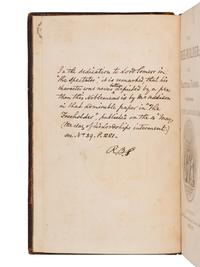 In the dedication to Lord Somers in
"The Spectator" it is remarked, that his
character was never better depicted by a pen
than this Nobleman's is by Mr Addison
in that admirable paper in "The
Freeholder", published on the 4 May,
(the day of his Lordships interment)
as No 39. P. 221.
R.B.P.